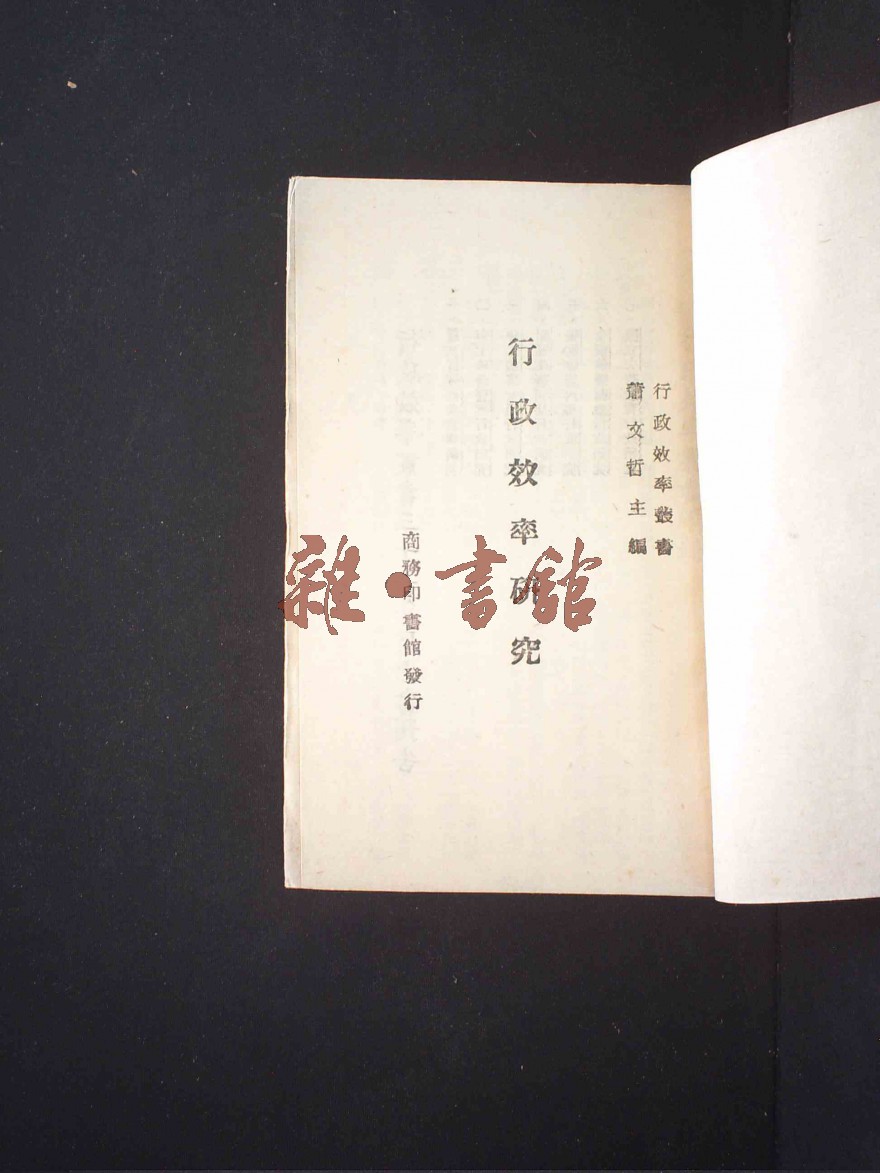 行政效率叢書
蕭文哲主編
行政效率研究
商務印書館發行
雜·書館